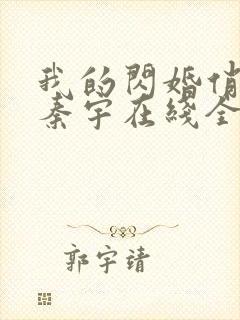 我的閃婚俏
秦宇在綫全
郭宇靖